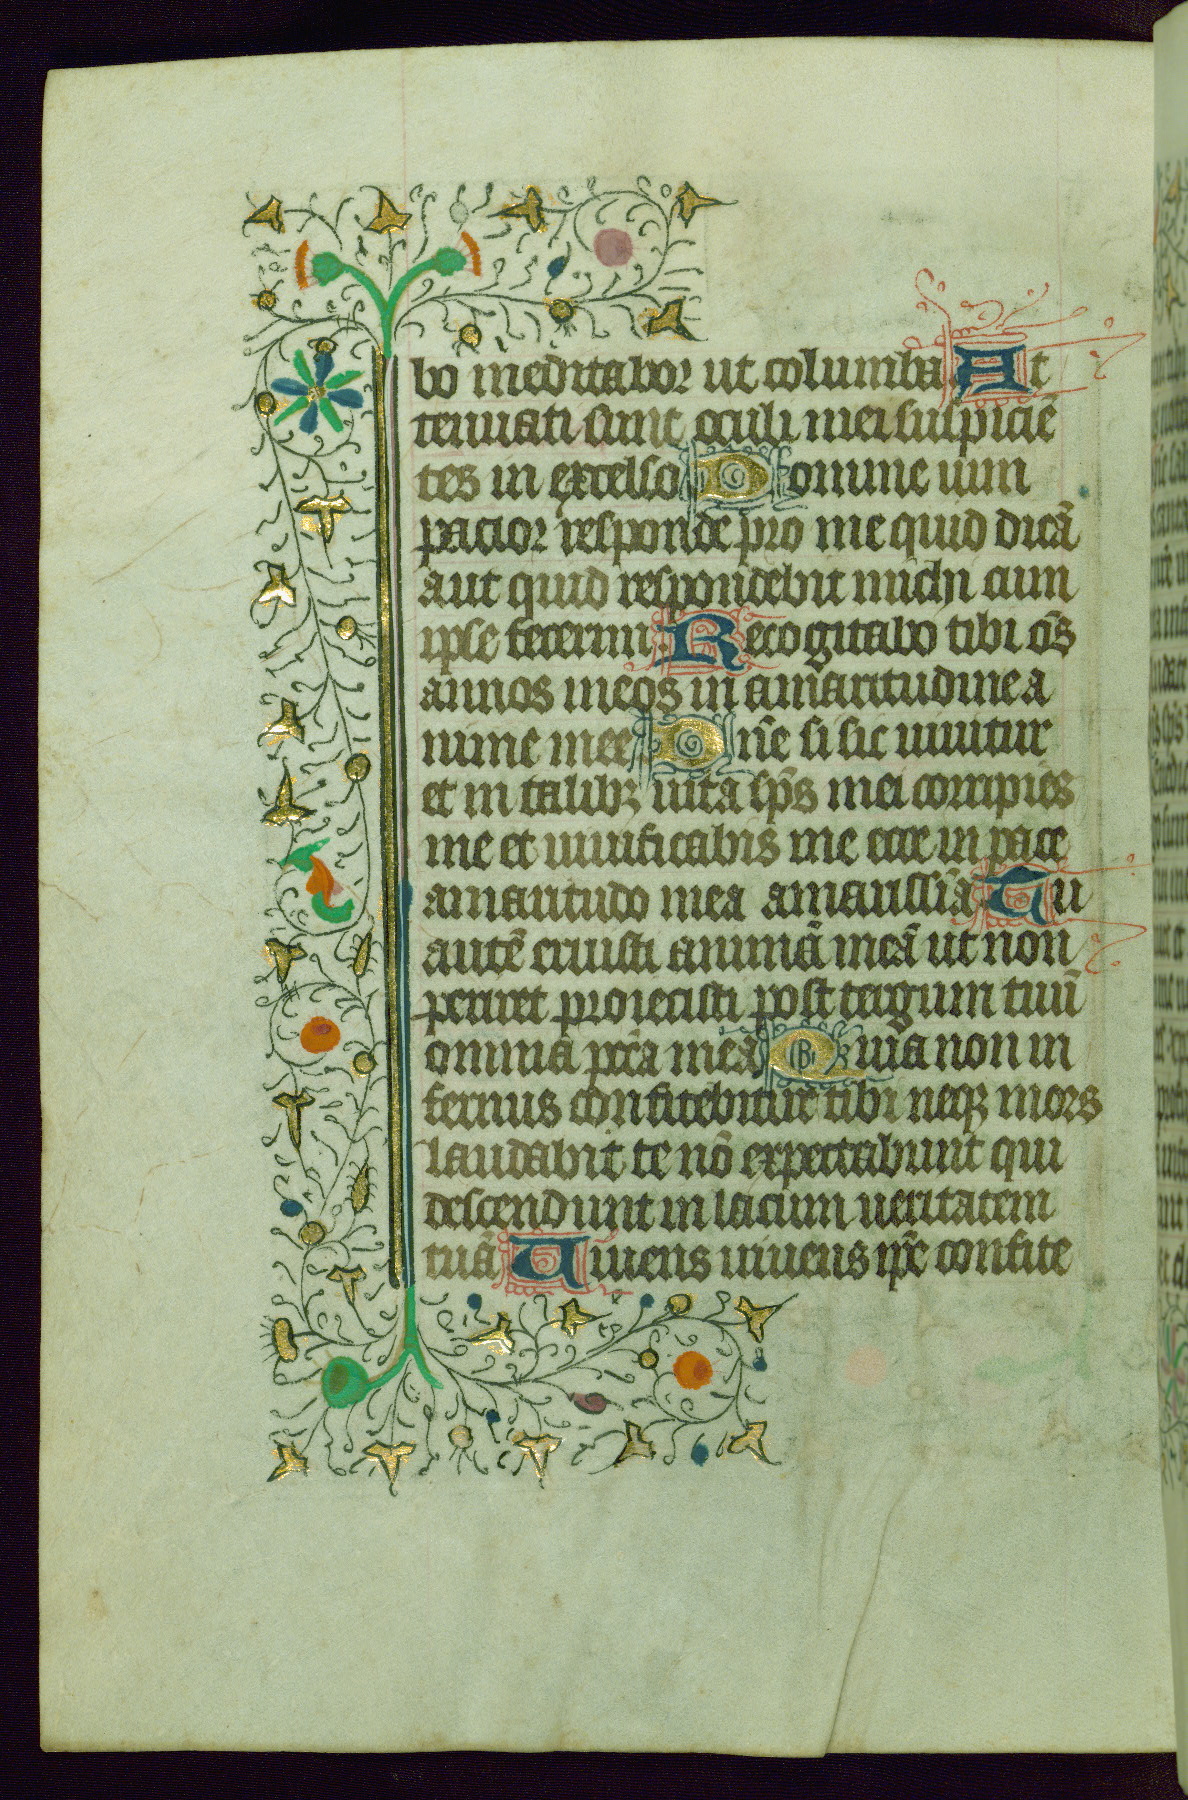 bo meditabor ut columba At
tenuati sunt oculi mei suspiciē
tes in excelso Domine uim
patior responde pro me quid dicā
aut quid respondebit michi cum
ipse fecerim Recogitabo tibi oēs
annos meos in amaritudine a
nime mee Dñe si sic uiuitur
et in talibꝫ uita sp̄s mei corripies
me et uiuificabis me ecce in pace
amaritudo mea amarissīa Tu
autē eruisti animā meā ut non
periret proiecisti post tergum tuū
omnia pc̄ca mea Quia non in
fernus confitebitur tibi neqꝫ mors
laudabit te nō expectabunt qui
descendunt in lacum ueritatem
tuā Uiuens uiuens ip̄e confite